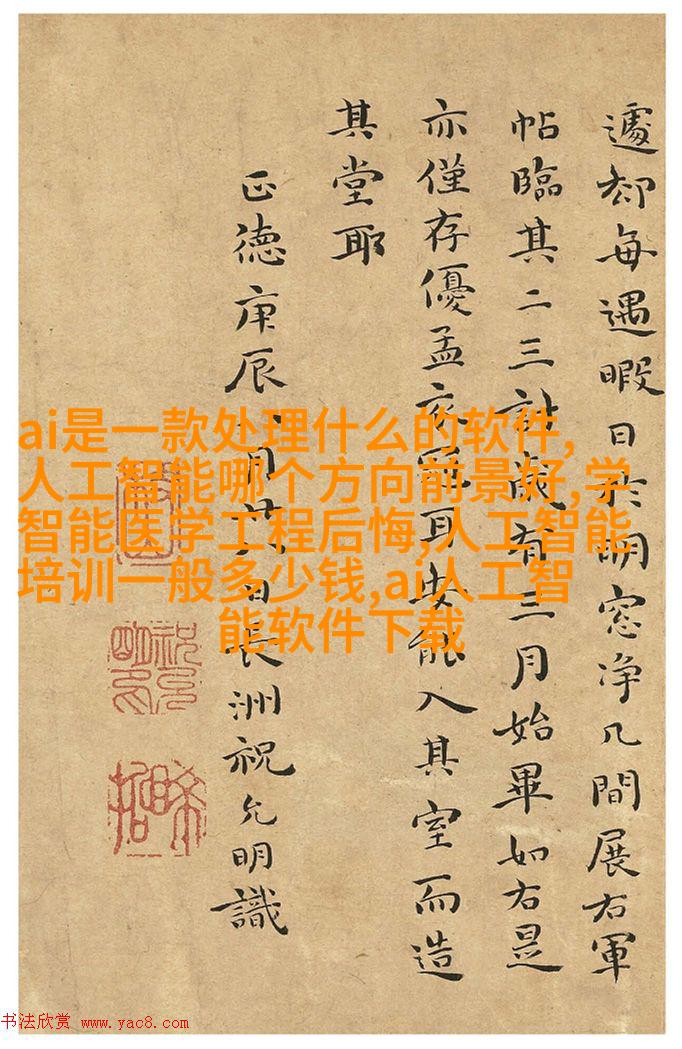 遽却每遇暇日於明窓净几間展右軍
帖臨其二三計歲有三月始畢如右是
亦僅存優孟衣冠耳安能入其室而造
其堂耶
正德庚辰月廿日長洲祝允明識
ai是一款处理什么的软件,
人工智能哪个方向前景好,学
智能医学工程后悔,人工智能
培训一般多少钱,ai人工智
能软件下载
书法欣赏 www.yac8.com